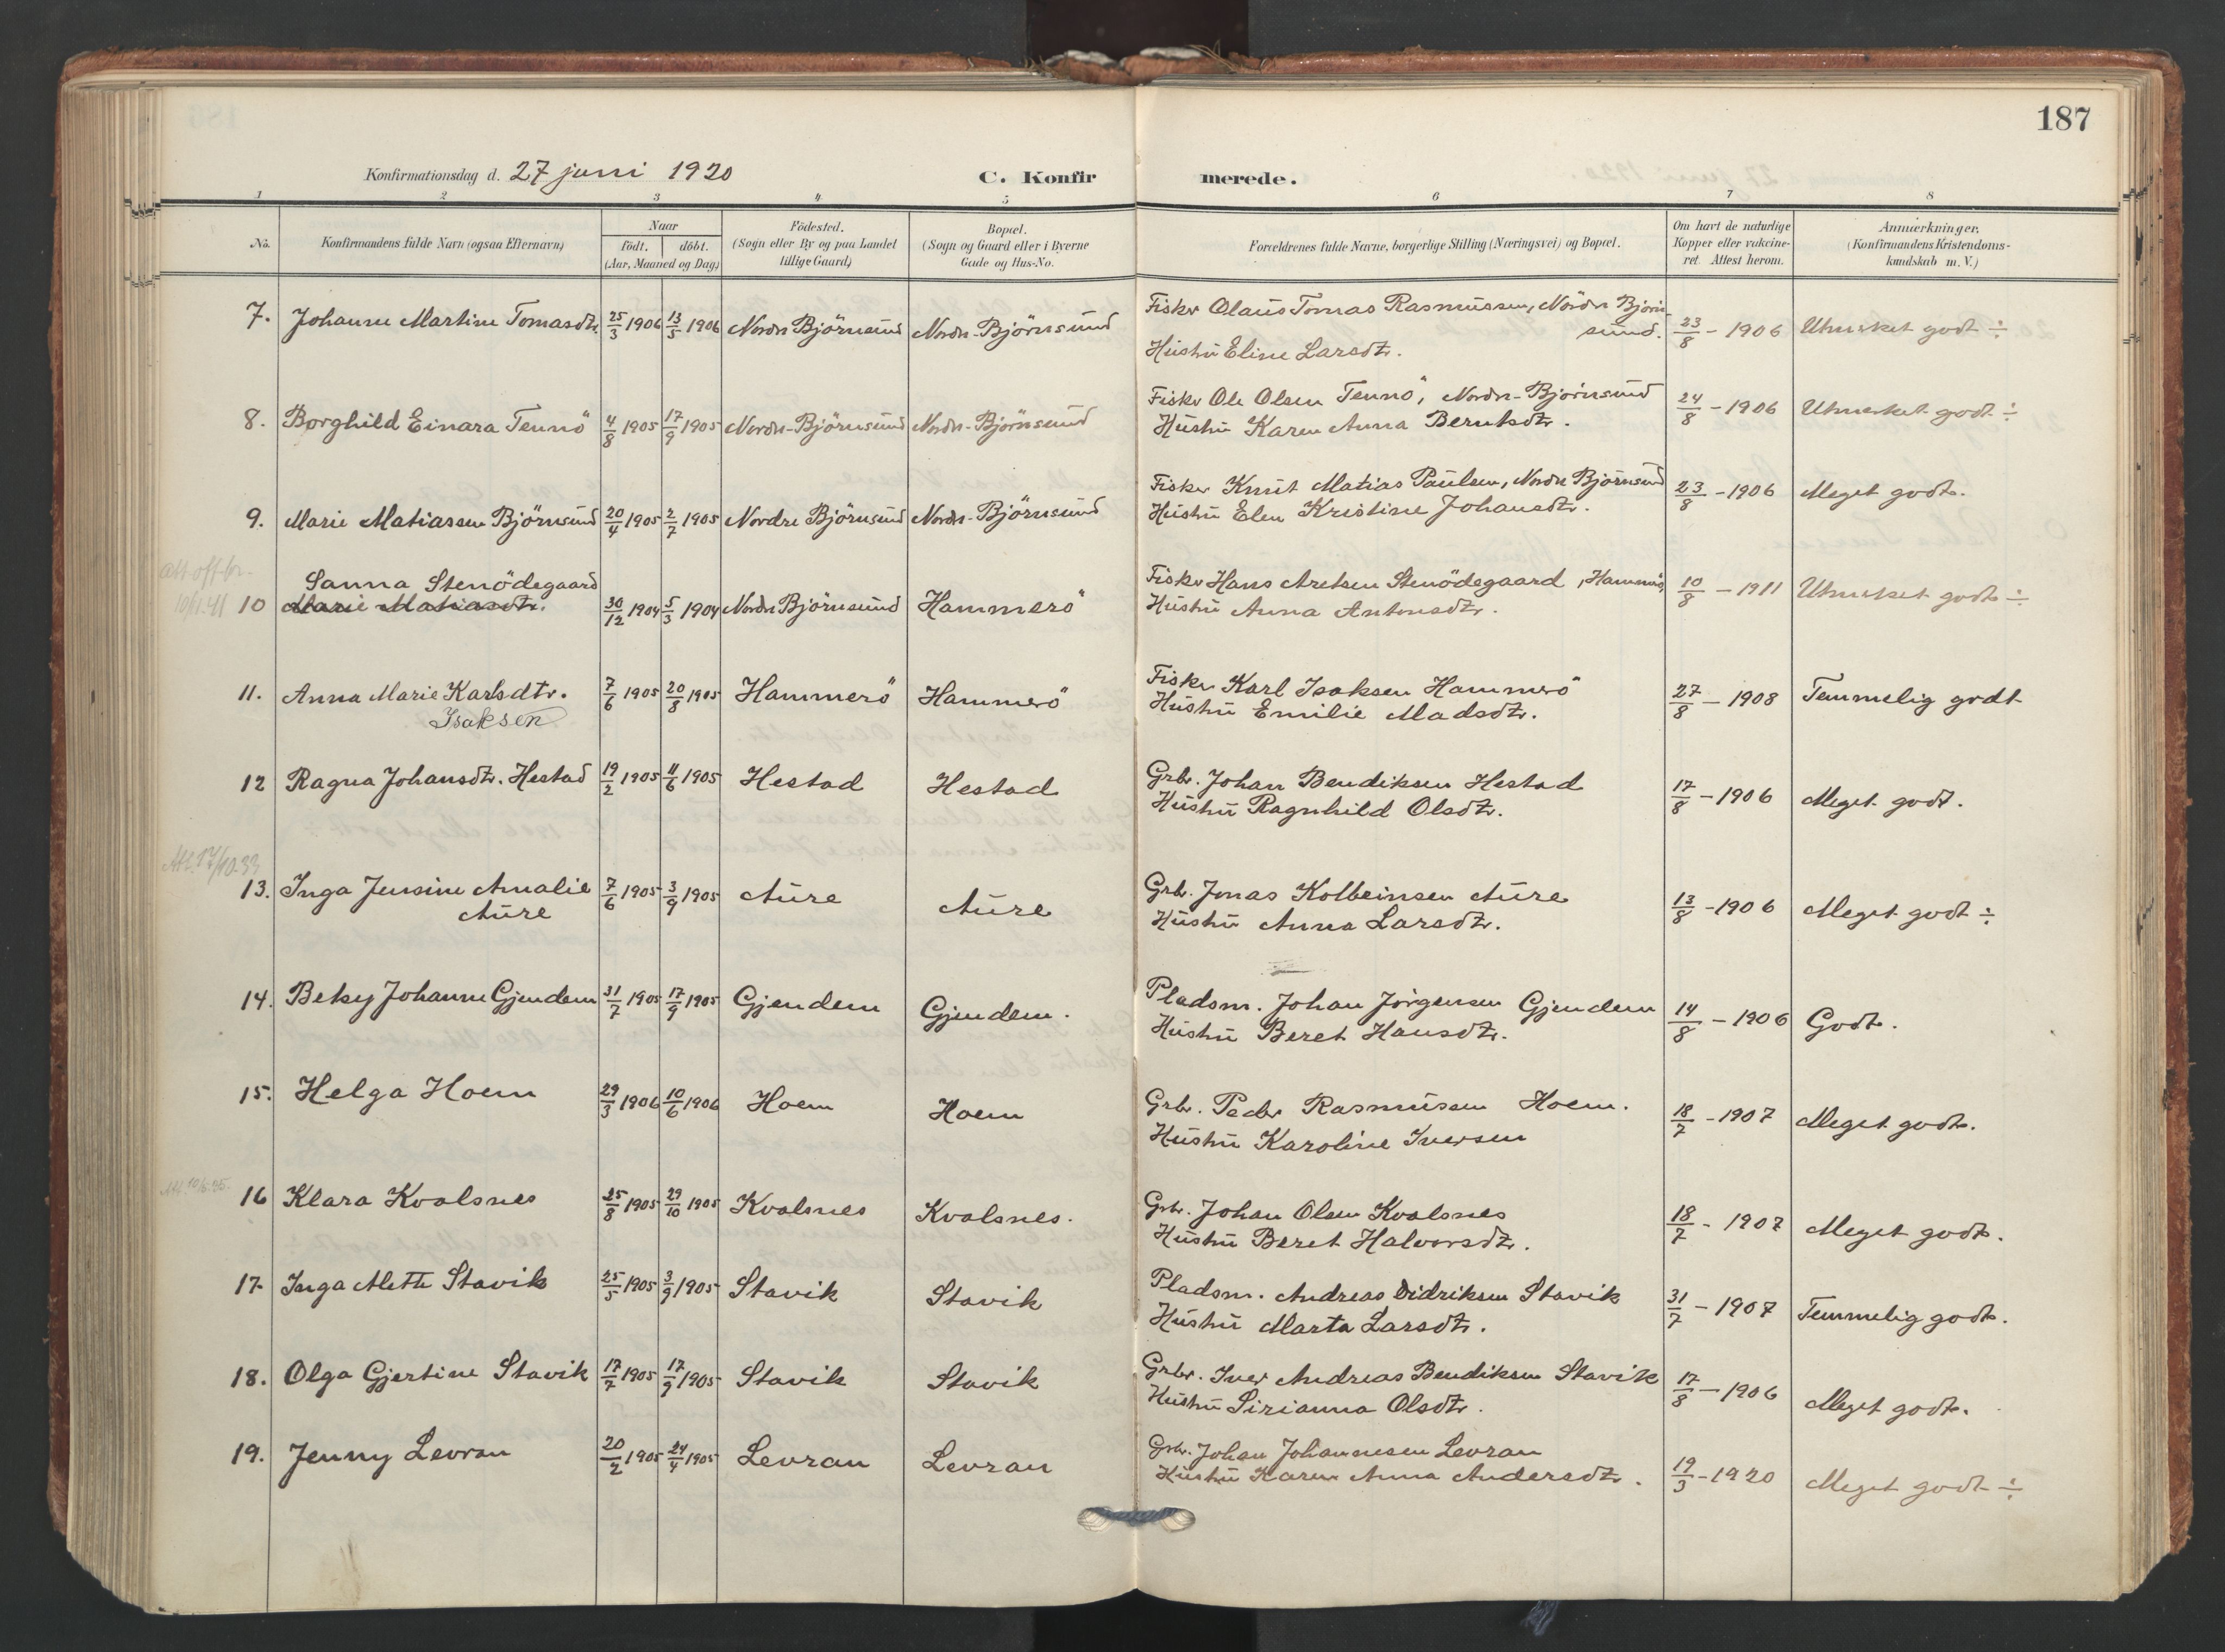 187
Konfirmationsdag d. 27 juni 1920
C. Konfir merede.
1 2 3 4 5 6 7 8
No.
Konfirmandens fulde Navn (ogsaa Efternavn)
Naar
födt. döbt.
(Aar, Maaned og Dag)
Födested.
(Sogn eller By og paa Landet
tillige Gaard)
Bopæl.
(Sogn og Gaard eller i Byerne
Gade og Hus-No.
Forældrenes fulde Navne, borgerlige Stilling (Næringsvei) og Bopæl.
Om havt de naturlige
Kopper eller vakcine-
ret. Attest herom.
Anmærkninger.
(Konfirmandens Kristendoms-
kundskab m. V.)
7. Johanne Martine Tomasdtr. 25/3 1906 13/5 1906 Nordre Björnsund Nordre-Björnsund Fisker Olaus Tomas Rasmussen, Nordre Björn-
sund. 23/8 - 1906 Utmerket godt ÷
Hustru Eline Larsdtr.
8. Borghild Einara Tennö 4/8 1905 17/9 1905 Nordre-Björnsund Nordre-Björnsund Fisker Ole Olsen Tennö, Nordre-Björnsund 24/8 - 1906 Utmerket godt ÷
Hustru Karen Anna Berntsdtr.
9. Marie Matiassen Björnsund 20/4 1905 2/7 1905 Nordre Björnsund Nordre-Björnsund Fisker Knut Matias Paulsen, Nordre Björnsund 23/8 - 1906 Meget godt.
Hustru Elen Kristine Johansdtr.
Att off br.
10/1.41
Sanna Stenödegaard
10 Marie Matiasdtr. 30/12 1904 5/3 1904 Nordre Björnsund Hammerö Fisker Hans Aretsen Stenödegaard, Hammerö, 10/8 - 1911 Utmerket godt ÷
Hustru Anna Antonsdtr.
11. Anna Marie Karlsdtr. 7/6 1905 20/8 1905 Hammerö Hammerö Fisker Karl Isaksen Hammerö 27/8 - 1908 Temmelig godt
Isaksen
Hustru Emilie Madsdtr.
12 Ragna Johansdtr. Hestad 19/2 1905 11/6 1905 Hestad Hestad Grbr. Johan Bendiksen Hestad 17/8 - 1906 Meget godt.
Hustru Ragnhild Olsdtr.
Att. 17/10.33
13. Inga Jensine Amalie 7/6 1905 3/9 1905 Aure Aure Grbr. Jonas Kolbeinsen Aure 13/8 - 1906 Meget godt ÷
Aure
Hustru Anna Larsdtr.
14. Betsy Johanne Gjendem 31/7 1905 17/9 1905 Gjendem Gjendem. Pladsm. Johan Jörgensen Gjendem 14/8 - 1906 Godt.
Hustru Beret Hansdtr.
15. Helga Hoem 29/3 1906 10/6 1906 Hoem Hoem Grbr. Peder Rasmussen Hoem. 18/7 - 1907 Meget godt.
Hustru Karoline Iversen
16 Klara Kvalsnes 25/8 1905 29/10 1905 Kvalsnes Kvalsnes. Grbr. Johan Olsen Kvalsnes 18/7 - 1907 Meget godt.
Hustru Beret Halvorsdtr.
17. Inga Mette Stavik 25/5 1905 3/9 1905 Stavik Stavik Pladsm. Andreas Didriksen Stavik 31/7 - 1907 Temmelig godt.
Hustru Marta Larsdtr.
18. Olga Gjertine Stavik 17/7 1905 17/9 1905 Stavik Stavik Grbr. Iver Andreas Bendiksen Stavik 17/8 - 1906 Meget godt.
Hustru Sirianna Olsdtr.
19. Jenny Levran 20/2 1905 24/4 1905 Levran Levran Grbr. Johan Johannesen Levran 19/3 - 1920 Meget godt ÷
Hustru Karen Anna Andersdtr.